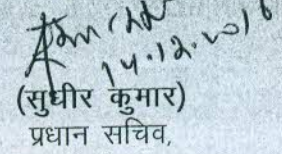 14.12.2016
(सुधीर कुमार)
प्रधान सचिव,